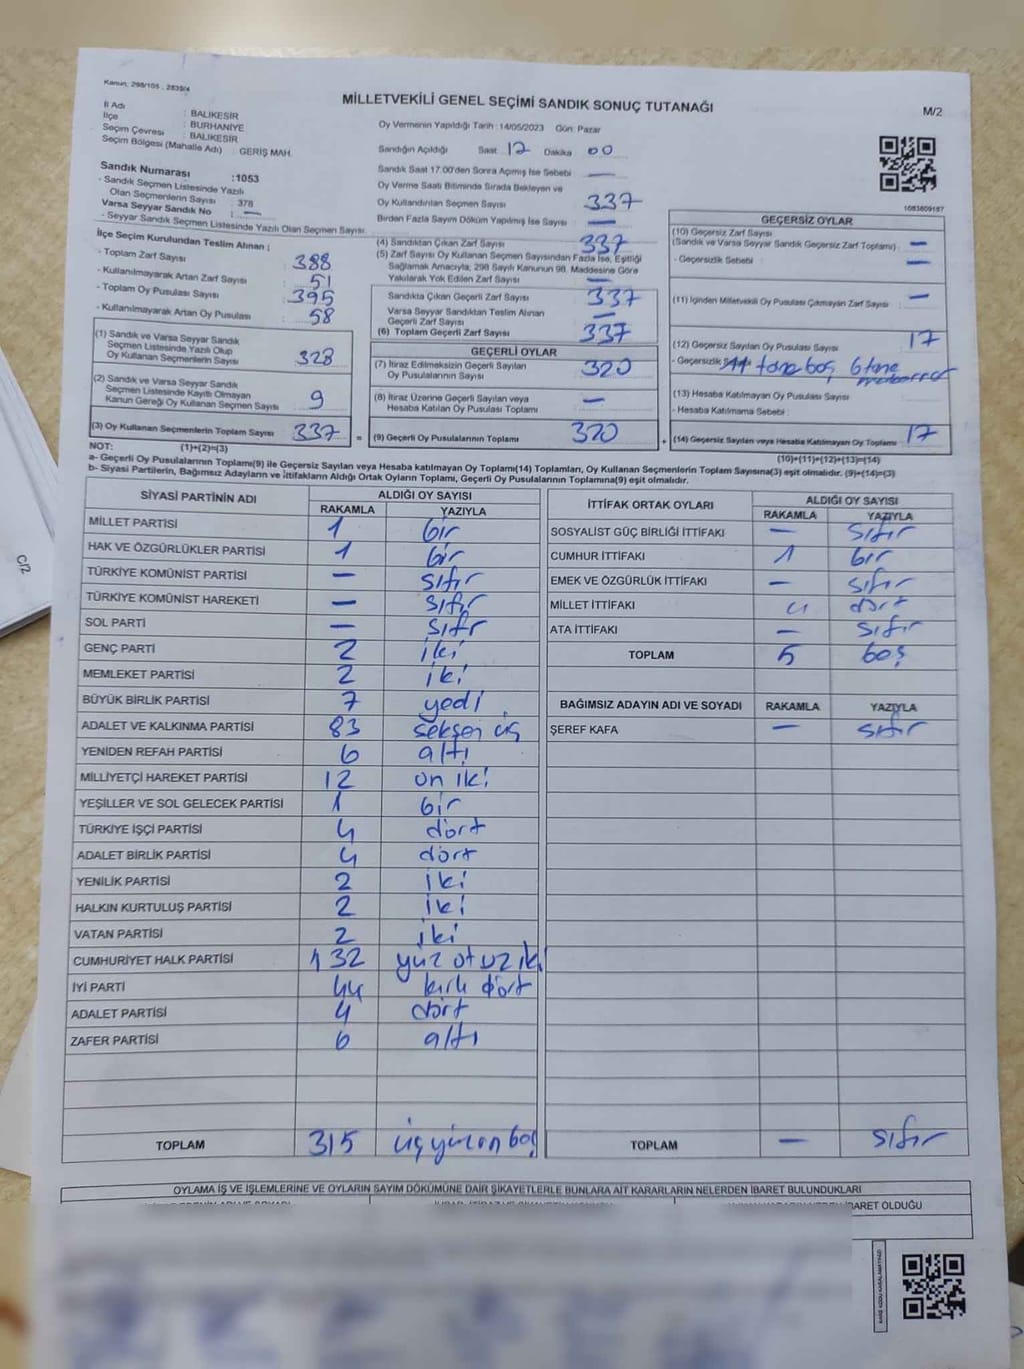 Kanun, 298/105 . 2839/4
MİLLETVEKİLİ GENEL SEÇİMİ SANDIK SONUÇ TUTANAĞI
M/2
İl Adı : BALIKESİR
İlçe : BURHANİYE
Seçim Çevresi : BALIKESİR
Seçim Bölgesi (Mahalle Adı) : GERİŞ MAH.
Sandık Numarası : 1053
- Sandık Seçmen Listesinde Yazılı
Olan Seçmenlerin Sayısı : 378
Varsa Seyyar Sandık No : —
- Seyyar Sandık Seçmen Listesinde Yazılı Olan Seçmen Sayısı
Oy Vermenin Yapıldığı Tarih : 14/05/2023 Gün: Pazar
Sandığın Açıldığı Saat 17 Dakika 00
Sandık Saat 17.00'den Sonra Açımış İse Sebebi —
Oy Verme Saati Bitiminde Sırada Bekleyen ve
Oy Kullandırılan Seçmen Sayısı 337
Birden Fazla Sayım Döküm Yapılmış İse Sayısı —
1083809187
İlçe Seçim Kurulundan Teslim Alınan ;
- Toplam Zarf Sayısı 388
- Kullanılmayarak Artan Zarf Sayısı 51
- Toplam Oy Pusulası Sayısı 395
- Kullanılmayarak Artan Oy Pusulası 58
(1) Sandık ve Varsa Seyyar Sandık
Seçmen Listesinde Yazılı Olup
Oy Kullanan Seçmenlerin Sayısı 328
(2) Sandık ve Varsa Seyyar Sandık
Seçmen Listesinde Kayıtlı Olmayan
Kanun Gereği Oy Kullanan Seçmen Sayısı 9
(3) Oy Kullanan Seçmenlerin Toplam Sayısı 337 =
(4) Sandıktan Çıkan Zarf Sayısı 337
(5) Zarf Sayısı Oy Kullanan Seçmen Sayısından Fazla İse, Eşitliği
Sağlamak Amacıyla; 298 Sayılı Kanunun 98. Maddesine Göre
Yakılarak Yok Edilen Zarf Sayısı —
Sandıkta Çıkan Geçerli Zarf Sayısı 337
Varsa Seyyar Sandıktan Teslim Alınan
Geçerli Zarf Sayısı —
(6) Toplam Geçerli Zarf Sayısı 337
GEÇERLİ OYLAR
(7) İtiraz Edilmeksizin Geçerli Sayılan
Oy Pusulalarının Sayısı 320
(8) İtiraz Üzerine Geçerli Sayılan veya
Hesaba Katılan Oy Pusulası Toplamı —
(9) Geçerli Oy Pusulalarının Toplamı 320 +
GEÇERSİZ OYLAR
(10) Geçersiz Zarf Sayısı
(Sandık ve Varsa Seyyar Sandık Geçersiz Zarf Toplamı) —
- Geçersizlik Sebebi : —
(11) İçinden Milletvekili Oy Pusulası Çıkmayan Zarf Sayısı : —
(12) Geçersiz Sayılan Oy Pusulası Sayısı 17
- Geçersizlik 11 tane boş 6 tane
(13) Hesaba Katılmayan Oy Pusulası Sayısı
- Hesaba Katılmama Sebebi :
(14) Geçersiz Sayılan veya Hesaba Katılmayan Oy Toplamı 17
NOT: (1)+(2)=(3)
(10)+(11)+(12)+(13)=(14)
a- Geçerli Oy Pusulalarının Toplamı(9) ile Geçersiz Sayılan veya Hesaba katılmayan Oy Toplamı(14) Toplamları, Oy Kullanan Seçmenlerin Toplam Sayısına(3) eşit olmalıdır. (9)+(14)=(3)
b- Siyasi Partilerin, Bağımsız Adayların ve İttifakların Aldığı Ortak Oyların Toplamı, Geçerli Oy Pusulalarının Toplamına(9) eşit olmalıdır.
SİYASİ PARTİNİN ADI ALDIĞI OY SAYISI
RAKAMLA YAZIYLA
MİLLET PARTİSİ 1 bir
HAK VE ÖZGÜRLÜKLER PARTİSİ 1 bir
TÜRKİYE KOMÜNİST PARTİSİ — sıfır
TÜRKİYE KOMÜNİST HAREKETİ — sıfır
SOL PARTİ — sıfır
GENÇ PARTİ 2 iki
MEMLEKET PARTİSİ 2 iki
BÜYÜK BİRLİK PARTİSİ 7 yedi
ADALET VE KALKINMA PARTİSİ 83 seksen üç
YENİDEN REFAH PARTİSİ 6 altı
MİLLİYETÇİ HAREKET PARTİSİ 12 on iki
YEŞİLLER VE SOL GELECEK PARTİSİ 1 bir
TÜRKİYE İŞÇİ PARTİSİ 4 dört
ADALET BİRLİK PARTİSİ 4 dört
YENİLİK PARTİSİ 2 iki
HALKIN KURTULUŞ PARTİSİ 2 iki
VATAN PARTİSİ 2 iki
CUMHURİYET HALK PARTİSİ 132 yüz otuz iki
İYİ PARTİ 44 kırk dört
ADALET PARTİSİ 4 dört
ZAFER PARTİSİ 6 altı
TOPLAM 315 üç yüz on beş
İTTİFAK ORTAK OYLARI ALDIĞI OY SAYISI
RAKAMLA YAZIYLA
SOSYALİST GÜÇ BİRLİĞİ İTTİFAKI — sıfır
CUMHUR İTTİFAKI 1 bir
EMEK VE ÖZGÜRLÜK İTTİFAKI — sıfır
MİLLET İTTİFAKI 4 dört
ATA İTTİFAKI — sıfır
TOPLAM 5 beş
BAĞIMSIZ ADAYIN ADI VE SOYADI RAKAMLA YAZIYLA
ŞEREF KAFA — sıfır
TOPLAM — sıfır
OYLAMA İŞ VE İŞLEMLERİNE VE OYLARIN SAYIM DÖKÜMÜNE DAİR ŞİKAYETLERLE BUNLARA AİT KARARLARIN NELERDEN İBARET BULUNDUKLARI
İBARET OLDUĞU
KARE KODU KARALAMAYINIZ!
C/2